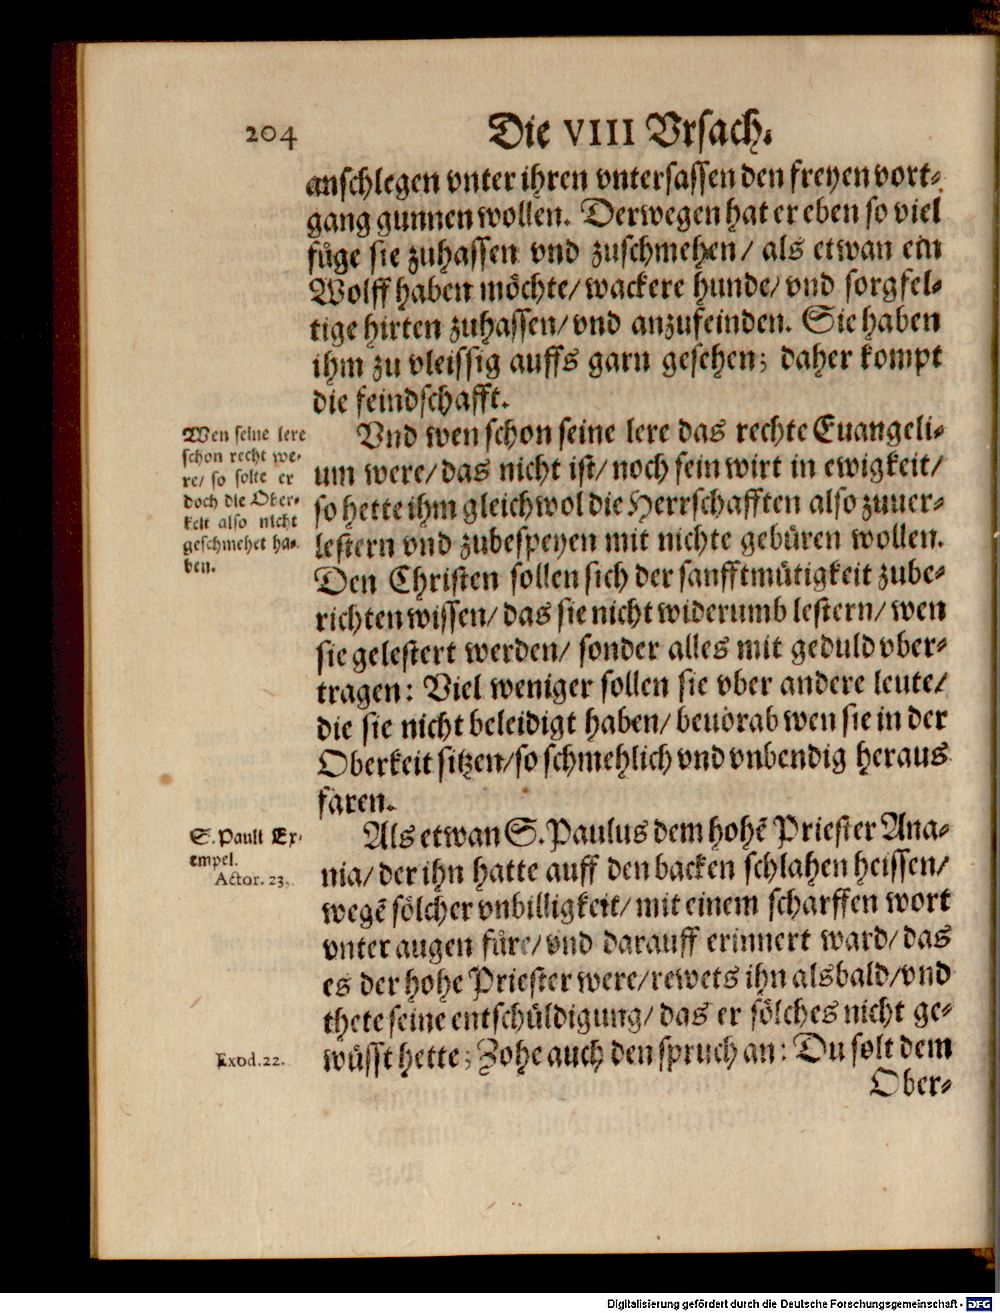 204
Die VIII Vrsach.
anschlegen vnter ihren vntersassen den freyen vort-
gang gunnen wollen. Derwegen hat er eben so viel
fůge sie zuhassen vnd zuschmehen/ als etwan ein
Wolff haben möchte/ wackere hunde/ vnd sorgfel-
tige hirten zuhassen/ vnd anzufeinden. Sie haben
ihm zu vleissig auffs garn gesehen; daher kompt
die feindschafft.
Wen seine lere
schon recht we-
re/ so solte er
doch die Ober-
keit also nicht
geschmehet ha-
ben.
Vnd wen schon seine lere das rechte Euangeli-
um were/ das nicht ist/ noch sein wirt in ewigkeit/
so hette ihm gleichwol die Herrschafften also zuuer-
lestern vnd zubespeyen mit nichte gebůren wollen.
Den Christen sollen sich der sanfftmůtigkeit zube-
richten wissen/ das sie nicht widerumb lestern/ wen
sie gelestert werden/ sonder alles mit geduld vber-
tragen: Viel weniger sollen sie vber andere leute/
die sie nicht beleidigt haben/ beuorab wen sie in der
Oberkeit sitzen/ so schmehlich vnd vnbendig heraus
faren.
S. Pauli Ex-
empel.
Actor. 23.
Als etwan S. Paulus dem hohē Priester Ana-
nia/ der ihn hatte auff den backen schlahen heissen/
wegē sölcher vnbilligkeit/ mit einem scharffen wort
vnter augen fůre/ vnd darauff erinnert ward/ das
es der hohe Priester were/ rewets ihn alsbald/ vnd
thete seine entschůldigung/ das er sölches nicht ge-
Exod. 22.
wůsst hette; Zohe auch den spruch an: Du solt dem
Ober-
Digitalisierung gefördert durch die Deutsche Forschungsgemeinschaft - DFG